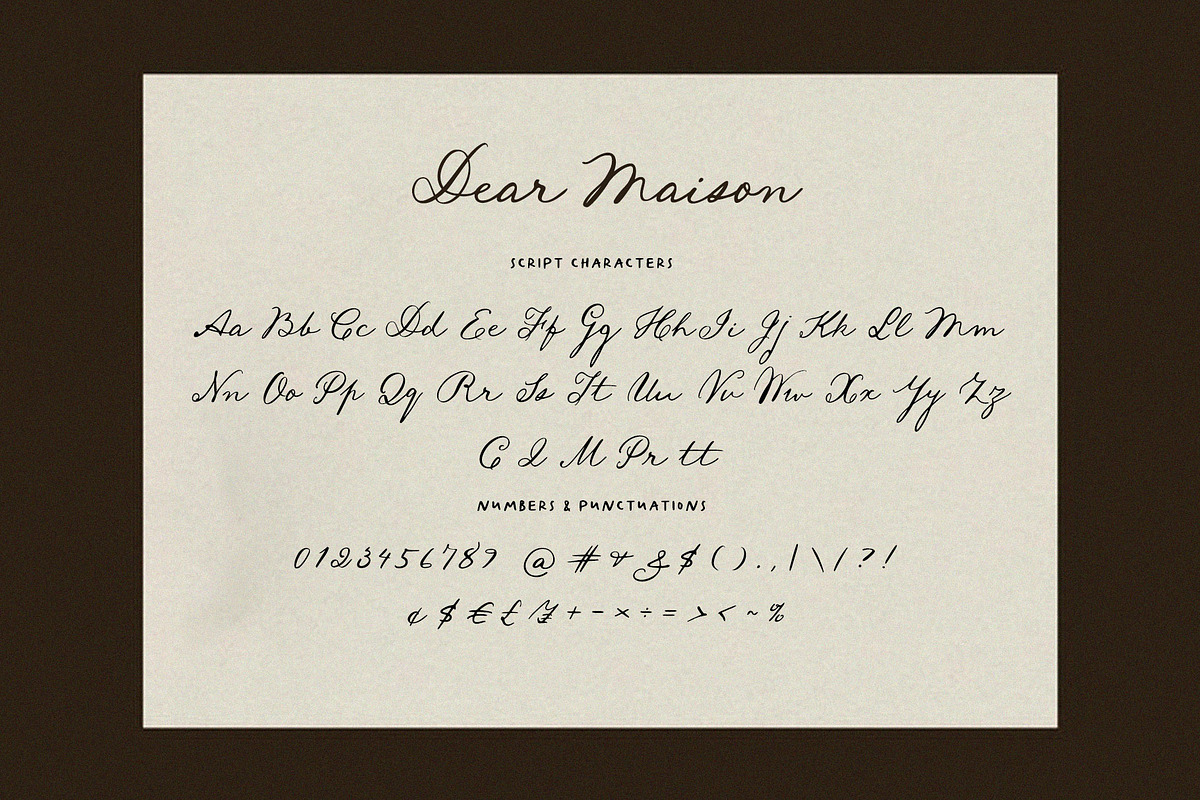 Dear Maison
SCRIPT CHARACTERS
Aa Bb Cc Dd Ee Ff Gg Hh Ii Jj Kk Ll Mm
Nn Oo Pp Qq Rr Ss Tt Uu Vv Ww Xx Yy Zz
C I M Pr tt
NUMBERS & PUNCTUATIONS
0123456789 @ # & & $ ( ) . , | \ / ? !
¢ $ € £ ¥ + - × ÷ = > < ~ %